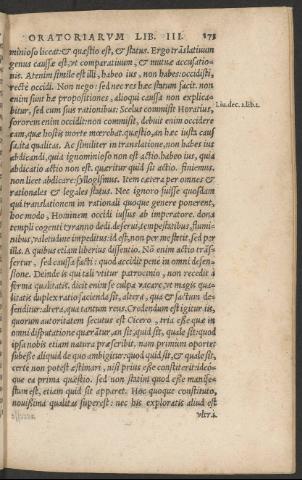 ORATORIARVM LIB. III. 173
minioso liceat: & quæstio est, & status. Ergo trāslatiuum
genus caussæ est, vt comparatiuum, & mutuæ accusatio-
nis. At enim simile est illi, habeo ius, non habes: occidisti,
recte occidi. Non nego: sed nec res hæc statum facit. non
enim sunt hæ propositiones, alioqui caussa non explica-
bitur, sed cum suis rationibus. Scelus commisit Horatius,
sororem enim occidit: non commisit, debuit enim occidere
eam, quæ hostis morte mœrebat. quæstio, an hæc iusta caus
sa, ita qualitas. Ac similiter in translatione, non habes ius
abdicandi, quia ignominioso non est actio. habeo ius, quia
abdicatio actio non est. quæritur quid sit actio. finiemus.
non licet abdicare: syllogismus. Item cætera per omnes &
rationales & legales status. Nec ignoro fuisse quosdam
qui translationem in rationali quoque genere ponerent,
hoc modo, Hominem occidi iussus ab imperatore. dona
templi cogenti tyranno dedi. deserui, tempestatibus, flumi-
nibus, valetudine impeditus: id est, non per me stetit, sed per
illa. A quibus etiam liberius dissentio. Nō enim actio trās
fertur, sed caussa facti: quod accidit pene in omni defen-
sione. Deinde is qui tali vtitur patrocinio, non recedit à
forma qualitatis. dicit enim se culpa vacare, vt magis qua-
litatis duplex ratio facienda sit, altera, qua & factum de-
fenditur: altera, qua tantum reus. Credendum est igitur iis,
quorum autoritatem secutus est Cicero, tria esse quæ in
omni disputatione quærātur, an sit, quid sit, quale sit: quod
ipsa nobis etiam natura præscribit. nam primùm oportet
subesse aliquid de quo ambigitur: quod quid sit, & quale sit,
certe non potest æstimari, nisi prius esse constiterit: ideó-
que ea prima quæstio. sed non statim quod esse manife-
stum est, etiam quid sit apparet. Hoc quoque constituto,
nouissima qualitas superest: nec his exploratis aliud est
vltrà.
Liu. dec. 1. lib. 1.